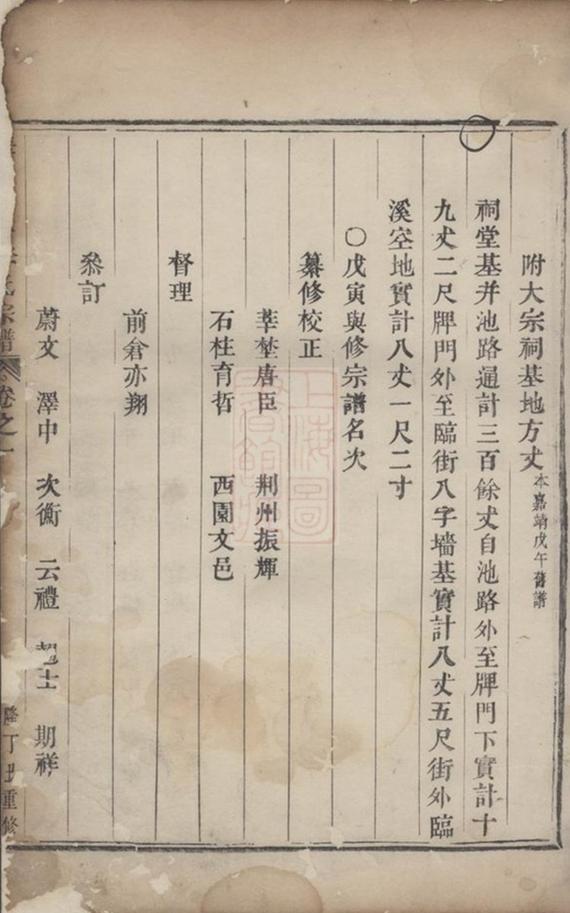 附大宗祠基地方丈 本嘉靖戊午舊譜
祠堂基并池路通計三百餘丈自池路外至牌門下實計十
九丈二尺牌門外至臨街八字墻基實計八丈五尺街外臨
溪空地實計八丈一尺二寸
○戊寅與修宗譜名次
纂修校正
莘埜唐臣 荆州振輝
石柱育哲 西園文邑
督理
前倉亦翔
叅訂
蔚文 澤中 次衡 云禮 士 期祥
氏宗譜 卷之一 隆丁丑重修
上海圖書館藏